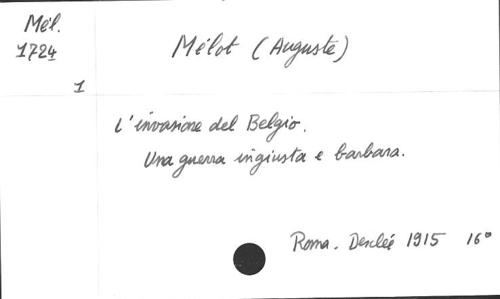 Mél.
1724
1
Mélot (Auguste)
L'invasione del Belgio.
Una guerra ingiusta e barbara.
Roma. Desclée 1915 16°